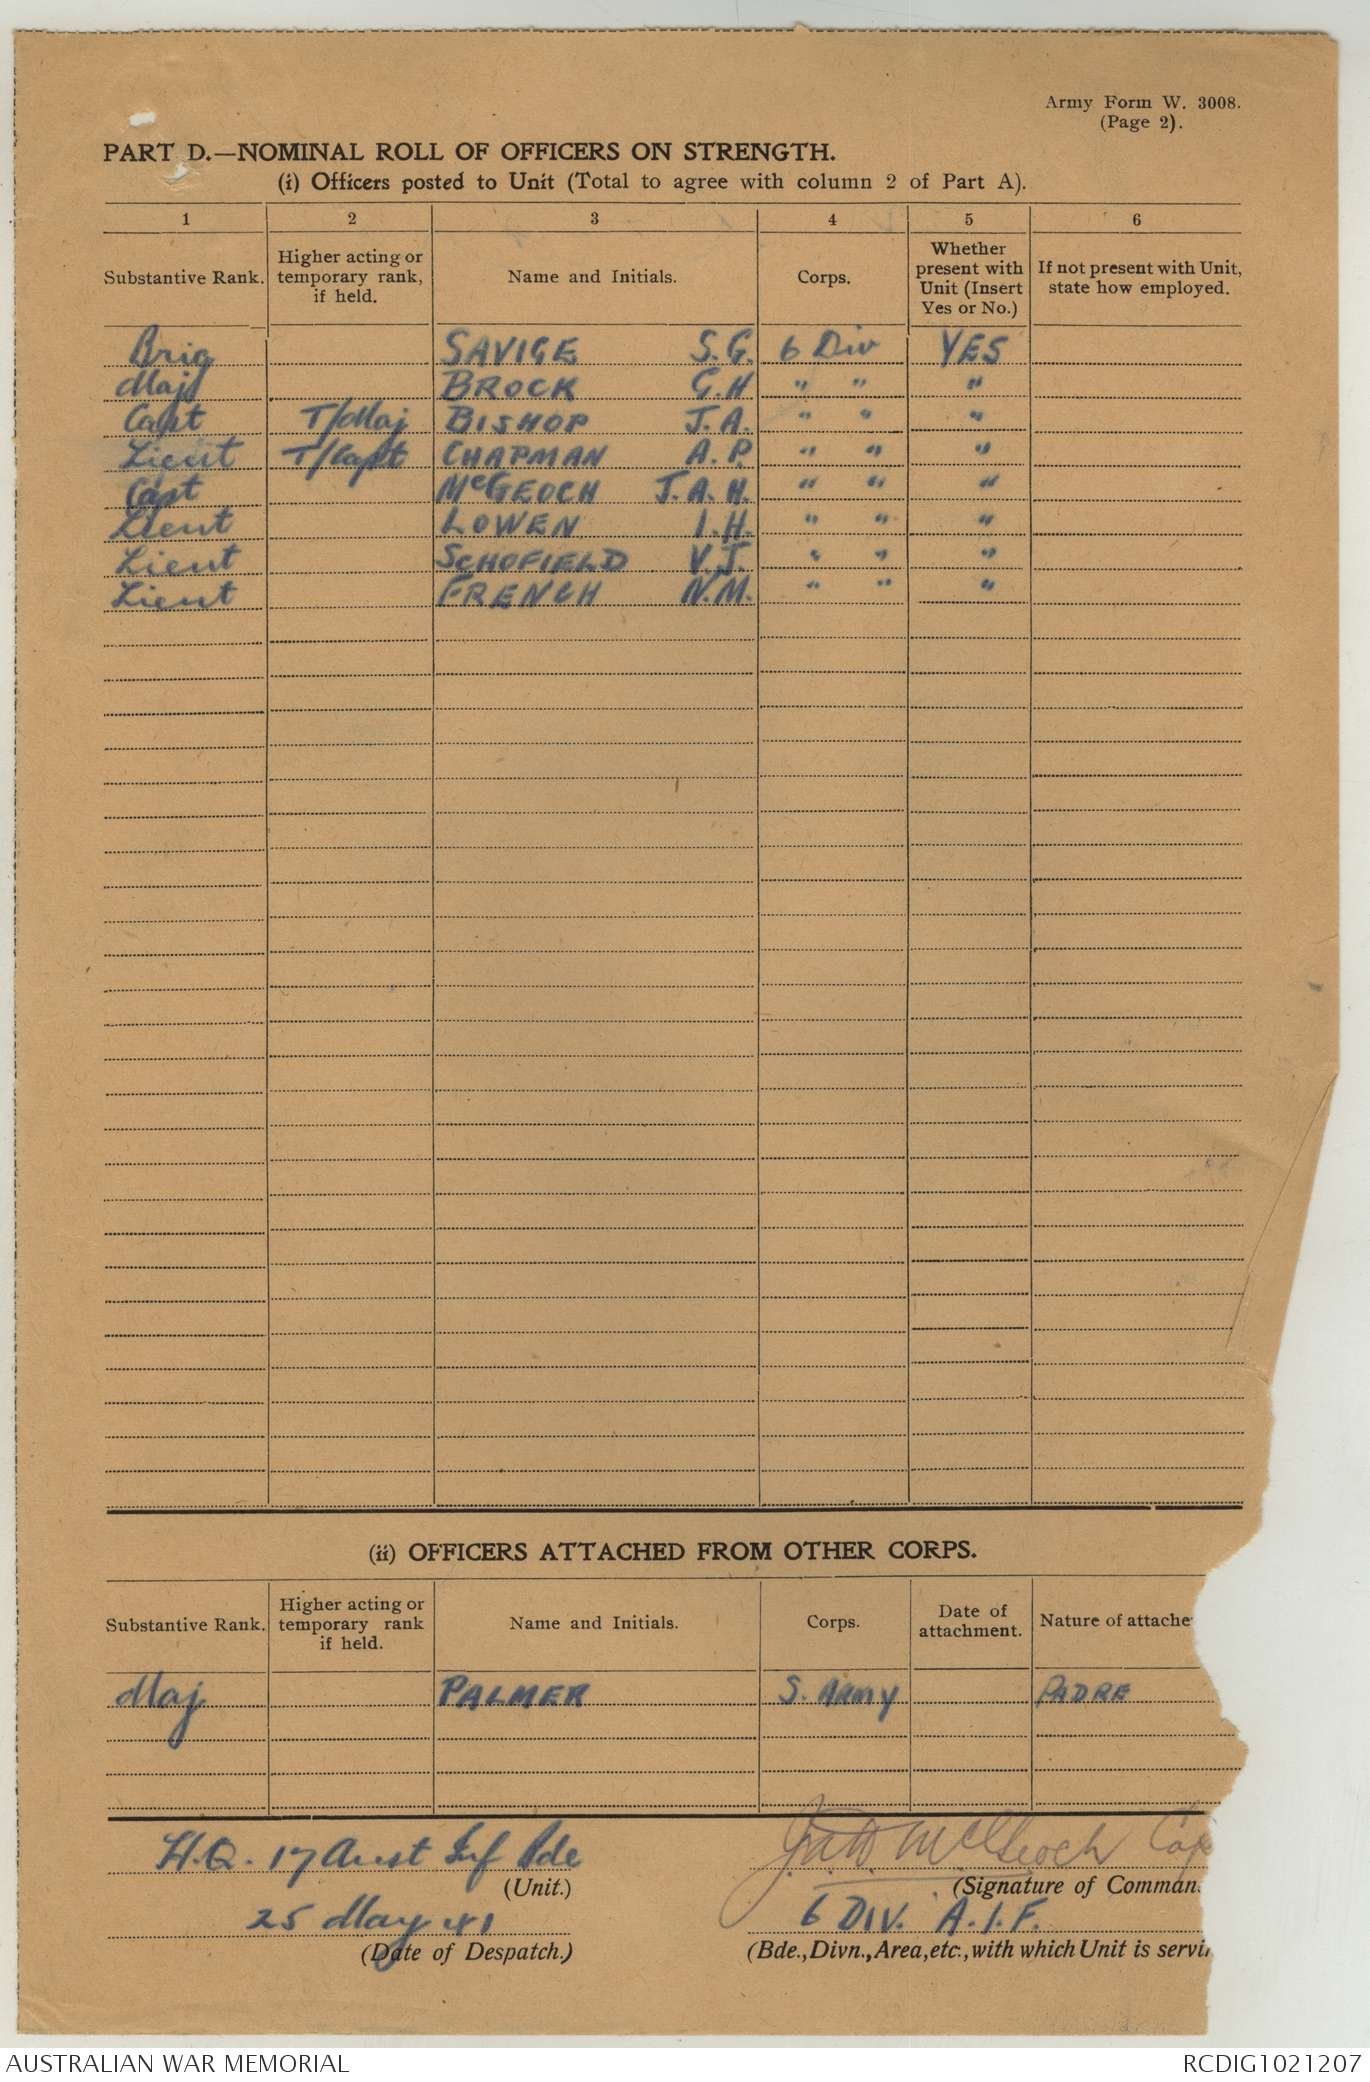 Army Form W. 3008.
(Page 2).
PART D.—NOMINAL ROLL OF OFFICERS ON STRENGTH.
(i) Officers posted to Unit (Total to agree with column 2 of Part A).
1 2 3 4 5 6
Substantive Rank. Higher acting or temporary rank, if held. Name and Initials. Corps. Whether present with Unit (Insert Yes or No.) If not present with Unit, state how employed.
Brig SAVIGE S.G. 6 Div YES
Maj BROCK G.H " " "
Capt T/Maj BISHOP J.A. " " "
Lieut T/Capt CHAPMAN A.P. " " "
Capt McGEOCH J.A.H. " " "
Lieut LOWEN I.H. " " "
Lieut SCHOFIELD V.J. " " "
Lieut FRENCH N.M. " " "
(ii) OFFICERS ATTACHED FROM OTHER CORPS.
Substantive Rank. Higher acting or temporary rank if held. Name and Initials. Corps. Date of attachment. Nature of attache
Maj PALMER S. ARMY PADRE
H.Q. 17 Aust Inf Bde J.A.H. McGeoch Cap
(Unit.) (Signature of Comman
25 May 41 6 DIV. A.I.F.
(Date of Despatch.) (Bde., Divn., Area, etc., with which Unit is servin
AUSTRALIAN WAR MEMORIAL RCDIG1021207